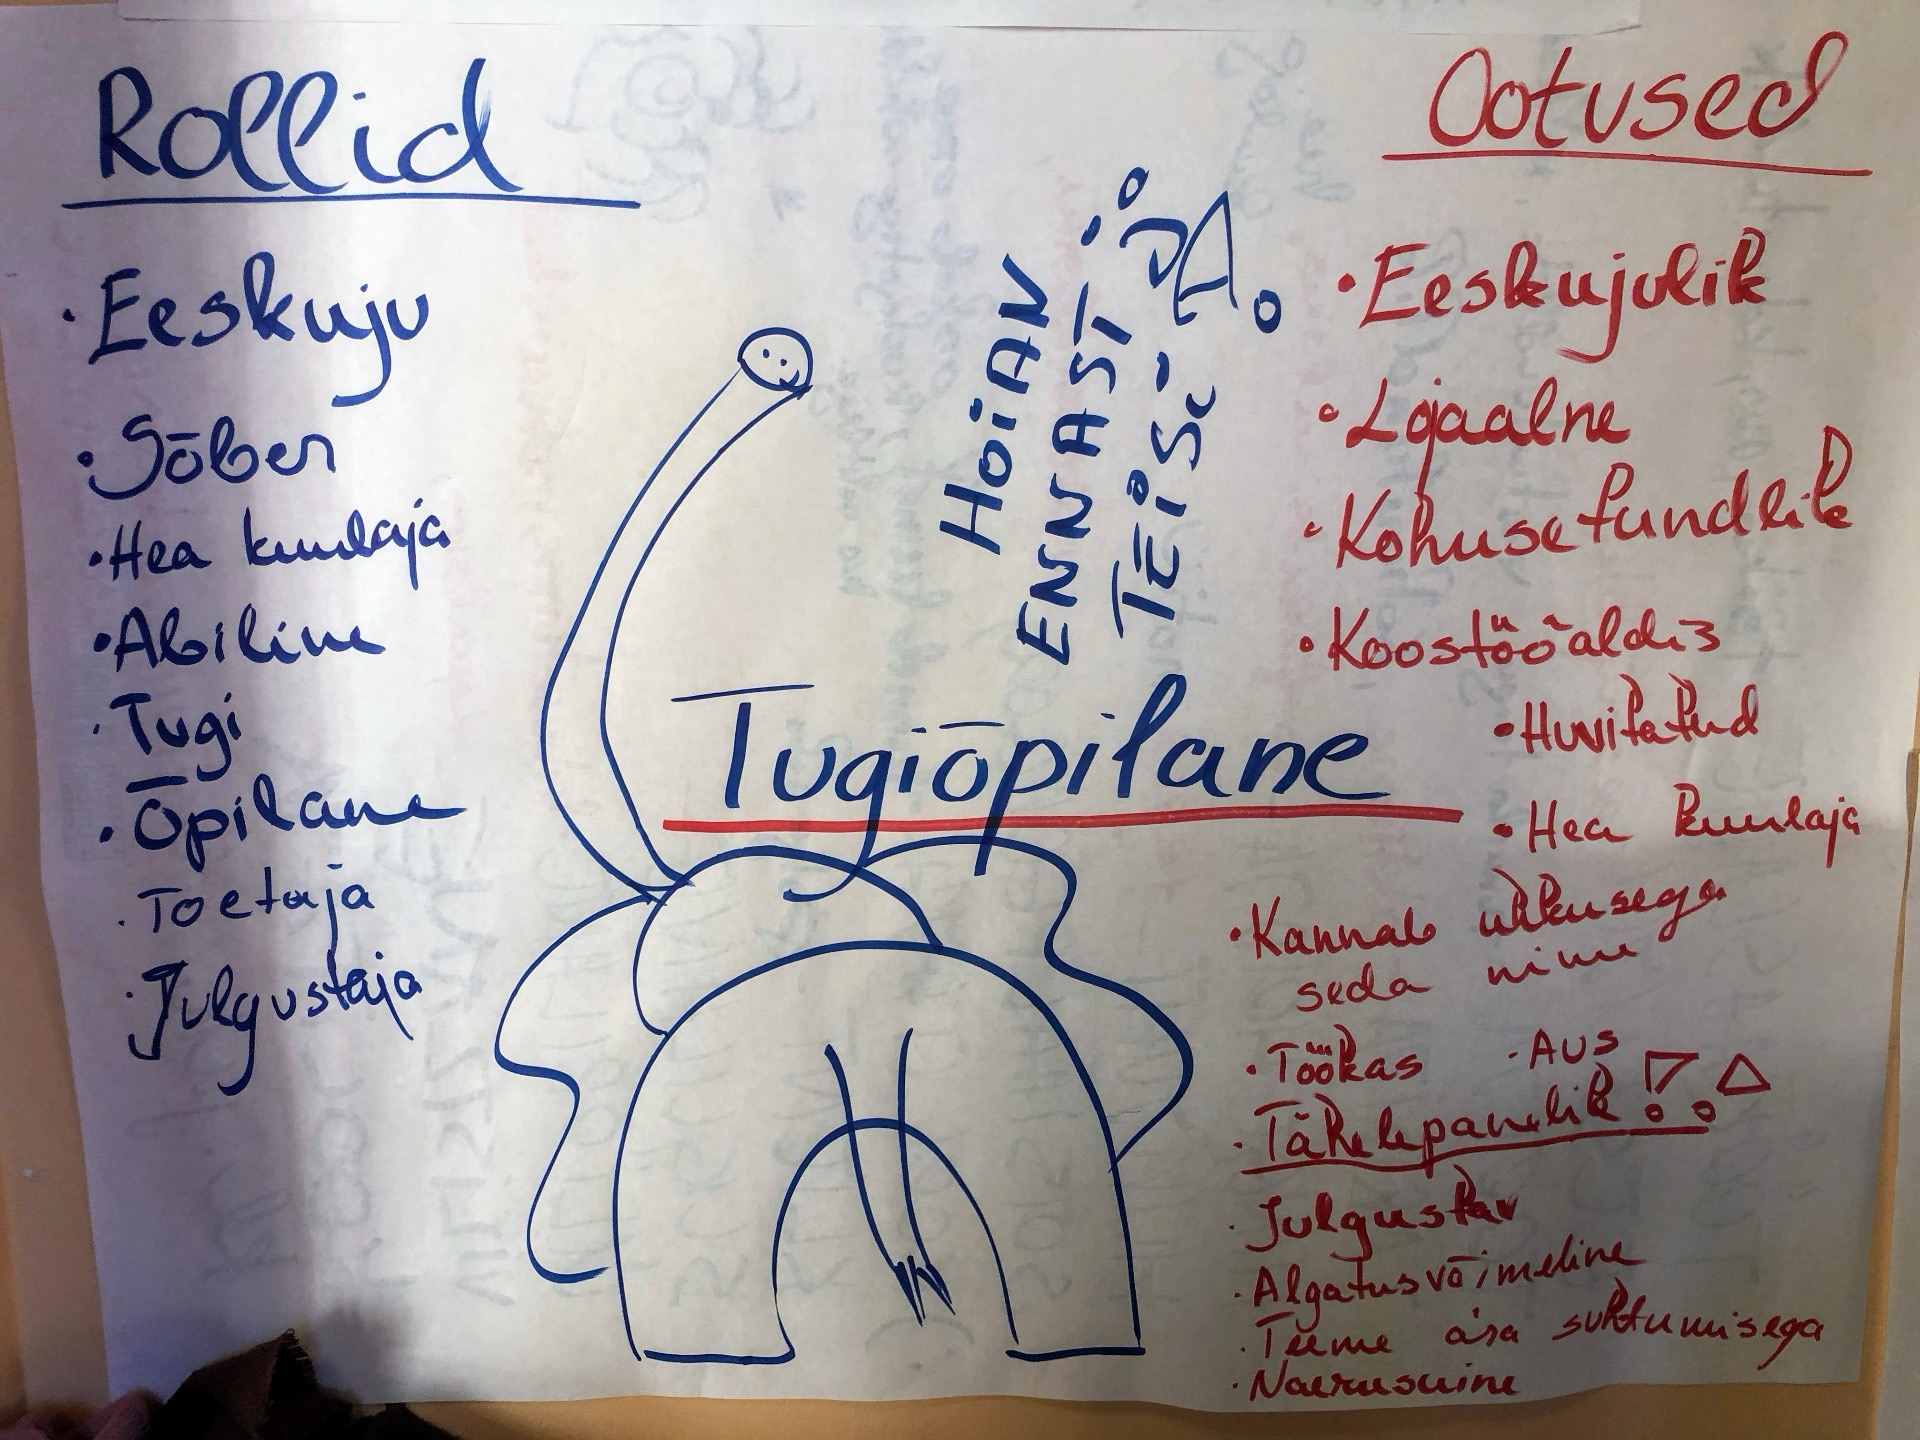 Rollid
• Eeskuju
• Sõber
• Hea kuulaja
• Abiline
• Tugi
• Õpilane
• Toetaja
• Julgustaja
HOIAN
ENNAST JA
TEISI
Tugiõpilane
Ootused
• Eeskujulik
• Lojaalne
• Kohusetundlik
• Koostööaldis
• Huvitatud
• Hea kuulaja
• Kannab uhkusega
seda nime
• Töökas • Aus
• Tähelepanelik !!
• Julgustav
• Algatusvõimeline
• Teeme ära suhtumisega
• Naerusuine